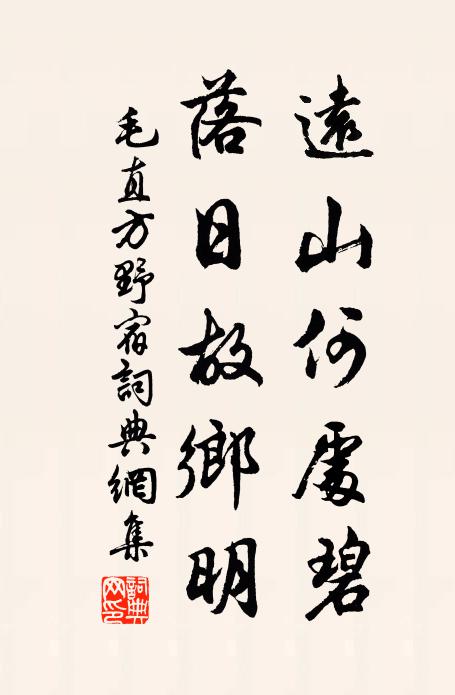 遠山何處碧
落日故鄉明
毛直方野宿詞典網集
詞典
网印